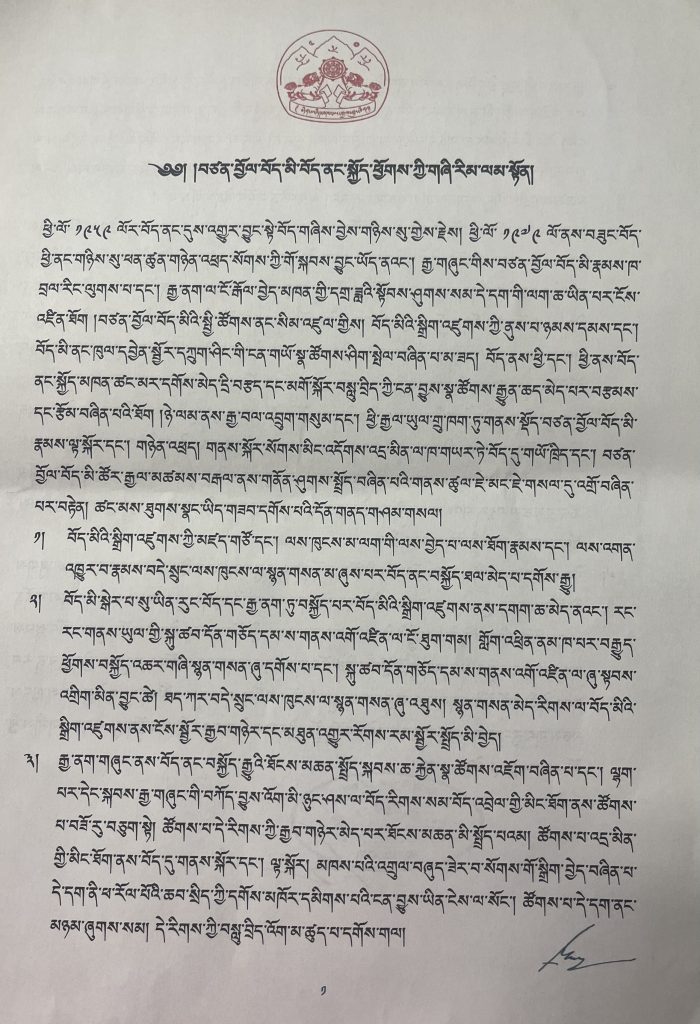 ༄༅། །བཙན་བྱོལ་བོད་མི་བོད་ནང་སྐྱོད་ཕྱོགས་ཀྱི་གཞི་རིམ་ལམ་སྟོན།
ཕྱི་ལོ་ ༡༩༥༩ ལོར་བོད་ནང་དུས་འགྱུར་བྱུང་སྟེ་བོད་གཞིས་བྱེས་གཉིས་སུ་གྱེས་རྗེས། ཕྱི་ལོ་ ༡༩༧༩ ལོ་ནས་བཟུང་བོད་
ཕྱི་ནང་གཉིས་སུ་ཕན་ཚུན་གཉེན་འཕྲད་སོགས་ཀྱི་གོ་སྐབས་བྱུང་ཡོད་ནའང་། རྒྱ་གཞུང་གིས་བཙན་བྱོལ་བོད་མི་རྣམས་ཁ་
བྲལ་རིང་ལུགས་པ་དང་། རྒྱ་ནག་ལ་ངོ་རྒོལ་བྱེད་མཁན་གྱི་དགྲ་ཟླའི་སྟོབས་ཤུགས་སམ་དེ་དག་གི་ལག་ཆ་ཡིན་པར་ངོས་
འཛིན་ཐོག །བཙན་བྱོལ་བོད་མིའི་སྤྱི་ཚོགས་ནང་སིམ་འཛུལ་གྱིས། བོད་མིའི་སྒྲིག་འཛུགས་ཀྱི་ནུས་པ་ཉམས་དམས་དང་།
བོད་མི་ནང་ཁུལ་དབྱེན་སྦྱོར་དཀྲུག་ཤིང་གི་ངན་གཡོ་སྣ་ཚོགས་ཤིག་སྤེལ་བཞིན་པ་མ་ཟད། བོད་ནས་ཕྱི་དང་། ཕྱི་ནས་བོད་
ནང་སྐྱོད་མཁན་ཚང་མར་དགོས་མེད་དྲི་བརྩད་དང་མགོ་སྐོར་བསླུ་བྲིད་ཀྱི་ངན་བྱུས་སྣ་ཚོགས་རྒྱུན་ཆད་མེད་པར་བརྩམས་
དང་རྩོམ་བཞིན་པའི་ཐོག །ཉེ་ལམ་ནས་རྒྱ་བལ་འབྲུག་གསུམ་དང་། ཕྱི་རྒྱལ་ཡུལ་གྲུ་ཁག་ཏུ་གནས་སྡོད་བཙན་བྱོལ་བོད་མི་
རྣམས་ལྟ་སྐོར་དང་། གཉེན་འཕྲད། གནས་སྐོར་སོགས་མིང་འདོགས་འདྲ་མིན་ལ་ཁ་གཡར་ཏེ་བོད་དུ་གཡོ་ཁྲིད་དང་། བཙན་
བྱོལ་བོད་མི་ཚོར་རྒྱལ་མཚམས་བརྒལ་ནས་གནོན་ཤུགས་སྤྲོད་བཞིན་པའི་གནས་ཚུལ་ཇེ་མང་ཇེ་གསལ་དུ་འགྲོ་བཞིན་
པར་བརྟེན། ཚང་མས་ཐུགས་སྣང་ཡིད་གཟབ་དགོས་པའི་དོན་གནད་གཤམ་གསལ།
༡། བོད་མིའི་སྒྲིག་འཛུགས་ཀྱི་མཛད་གཙོ་དང་། ལས་ཁུངས་མ་ལག་གི་ལས་བྱེད་པ་ལས་ཐོག་རྣམས་དང་། ལས་འགན་
འཁྱུར་བ་རྣམས་བདེ་སྲུང་ལས་ཁུངས་ལ་སྙན་གསན་མ་ཞུས་པར་བོད་ནང་བསྐྱོད་ཐལ་མེད་པ་དགོས་རྒྱུ།
༢། བོད་མི་སྒེར་པ་སུ་ཡིན་རུང་བོད་དང་རྒྱ་ནག་ཏུ་བསྐྱོད་པར་བོད་མིའི་སྒྲིག་འཛུགས་ནས་དགག་ཆ་མེད་ནའང་། རང་
རང་གནས་ཡུལ་གྱི་སྐུ་ཚབ་དོན་གཅོད་དམ་ས་གནས་འགོ་འཛིན་ལ་ངོ་ཐུག་གམ། གློག་འཕྲིན་ནམ་ཁ་པར་བརྒྱུད་
ཕྱོགས་བསྐྱོད་འཆར་གཞི་སྙན་གསན་ཞུ་དགོས་པ་དང་། སྐུ་ཚབ་དོན་གཅོད་དམ་ས་གནས་འགོ་འཛིན་ལ་ཞུ་སྟབས་
འགྲིག་མིན་བྱུང་ཚེ། ཐད་ཀར་བདེ་སྲུང་ལས་ཁུངས་ལ་སྙན་གསན་ཞུ་འཐུས། སྙན་གསན་མེད་རིགས་ལ་བོད་མིའི་
སྒྲིག་འཛུགས་ནས་ངོས་སྦྱོར་རྒྱབ་གཉེར་དང་མཐུན་འགྱུར་རོགས་རམ་སྦྱོར་སྤྲོད་མི་བྱེད།
༣། རྒྱ་ནག་གཞུང་ནས་བོད་ནང་བསྐྱོད་རྒྱུའི་ཐོངས་མཆན་སྤྲོད་སྐབས་ཆ་རྐྱེན་སྣ་ཚོགས་འཇོག་བཞིན་པ་དང་། ལྷག་
པར་དེང་སྐབས་རྒྱ་གཞུང་གི་བཀོད་བྱུས་འོག་མི་ཉུང་ཤས་ལ་བོད་རིགས་སམ་བོད་འབྲེལ་གྱི་མིང་ཐོག་ནས་ཚོགས་
པ་བཟོ་རུ་བཅུག་སྟེ། ཚོགས་པ་དེ་རིགས་ཀྱི་རྒྱབ་གཉེར་མེད་པར་ཐོངས་མཆན་མི་སྤྲོད་པའམ། ཚོགས་པ་འདྲ་མིན་
གྱི་མིང་ཐོག་ནས་བོད་དུ་གནས་སྐོར་དང་། ལྟ་སྐོར། མཁས་པའི་འགྲུལ་བཞུད་ཟེར་བ་སོགས་གོ་སྒྲིག་བྱེད་བཞིན་པ་
དེ་དག་ནི་ཕ་རོལ་པོའི་ཆབ་སྲིད་ཀྱི་དགོས་མཁོར་དམིགས་པའི་ངན་བྱུས་ཡིན་ངེས་ལ་སོང་། ཚོགས་པ་དེ་དག་ནང་
མཉམ་ཞུགས་སམ། དེ་རིགས་ཀྱི་བསླུ་བྲིད་འོག་མ་ཚུད་པ་དགོས་གལ།
༡